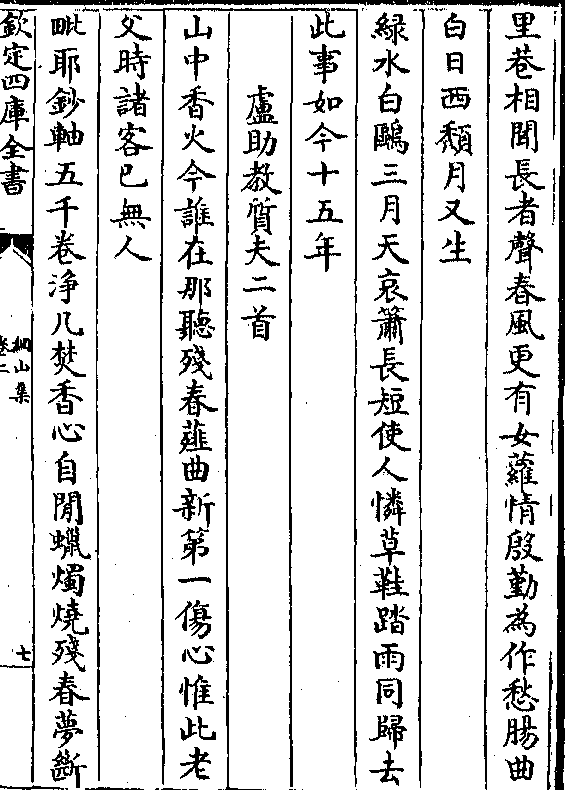 里巷相聞長者聲春風更有女蘿情殷勤為作愁腸曲
白日西頽月又生
綠水白鷗三月天哀簫長短使人憐草鞋踏雨同歸去
此事如今十五年
盧助教質夫二首
山中香火今誰在那聽殘春薤曲新第一傷心惟此老
父時諸客已無人
毗耶鈔軸五千卷淨几焚香心自閒蠟燭燒殘春夢斷
欽定四庫全書
山集
卷二
七